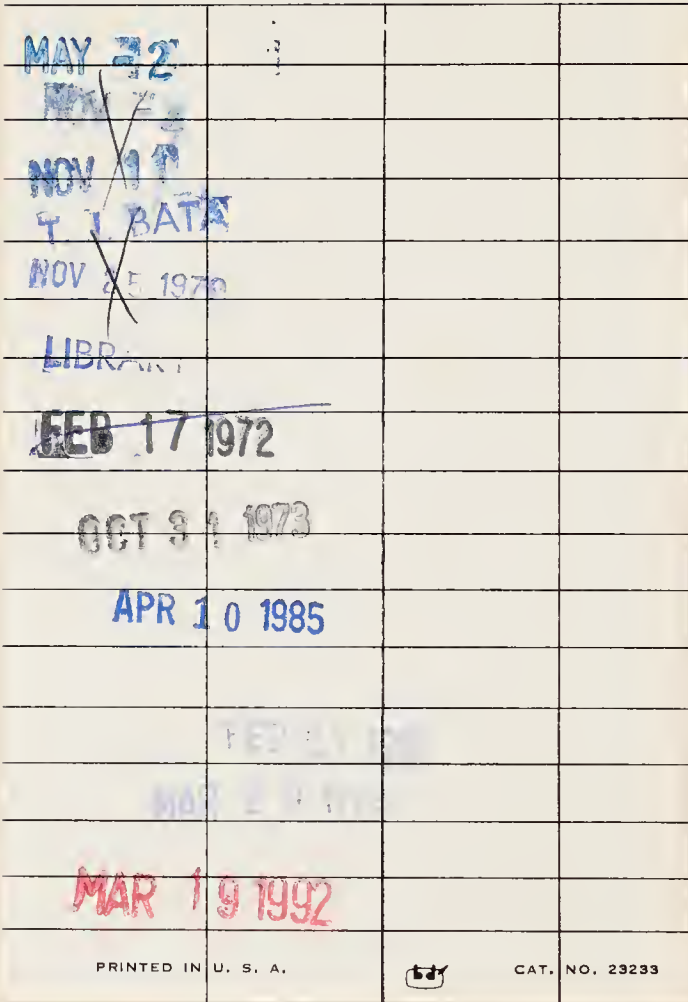 MAY
NOV
NOV 11
T. J. BATA
NOV 25 1970
LIBRARY
FEB 17 1972
OCT 31 1973
APR 10 1985
FEB
MAR 2
MAR 19 1992
PRINTED IN U. S. A. bd CAT. NO. 23233